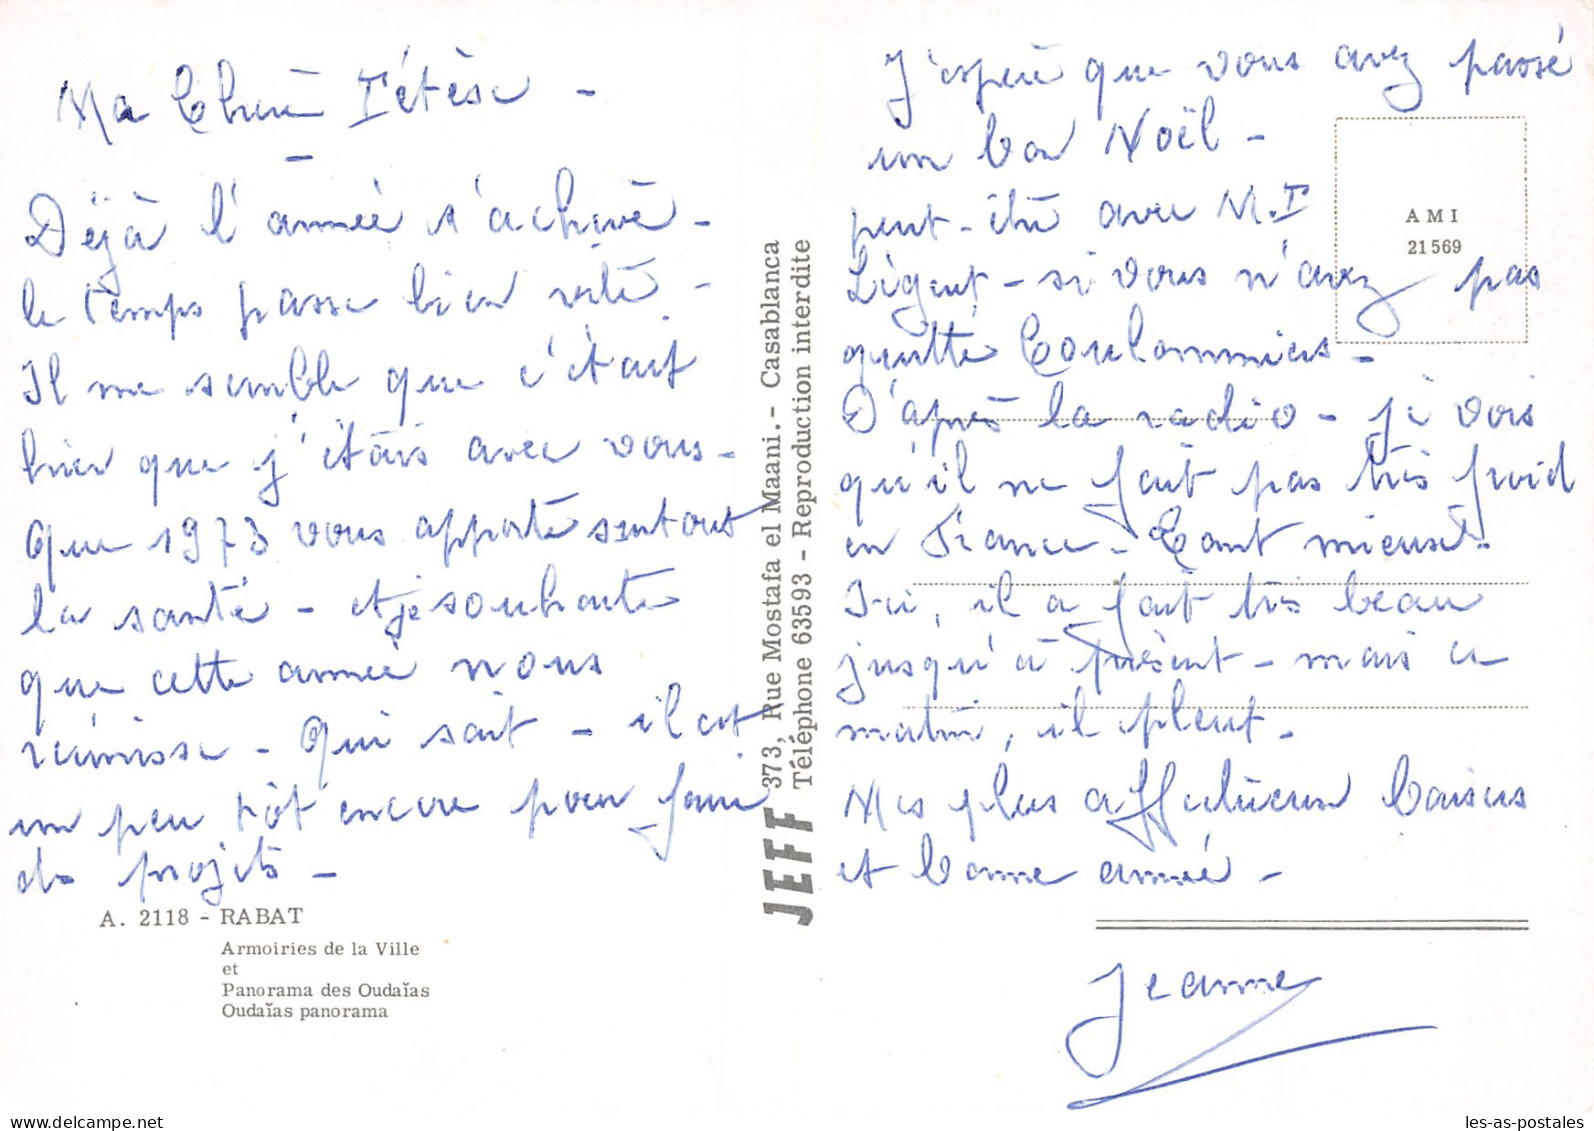 Ma Chère Tétèse -
Déjà l'année s'achève -
le temps passe bien vite -
Il me semble que c'était
hier que j'étais avec vous -
Que 1973 vous apporte surtout
la santé - et je souhaite
que cette année nous
réunisse - Qui sait - il est
un peu tôt encore pour faire
des projets -
A. 2118 - RABAT
Armoiries de la Ville
et
Panorama des Oudaïas
Oudaïas panorama
JEFF 373, Rue Mostafa el Maani. - Casablanca
Téléphone 63593 - Reproduction interdite
J'espère que vous avez passé
un bon Noël -
peut-être avec M.T
Légent - si vous n'avez pas
quitté Coulommiers -
D'après la radio - je vois
qu'il ne fait pas très froid
en France - Tant mieux -
Ici, il a fait très beau
jusqu'à présent - mais ce
matin, il pleut -
Mes plus affectueux baisers
et bonne année -
Jeanne
AMI
21569
les-as-postales.com